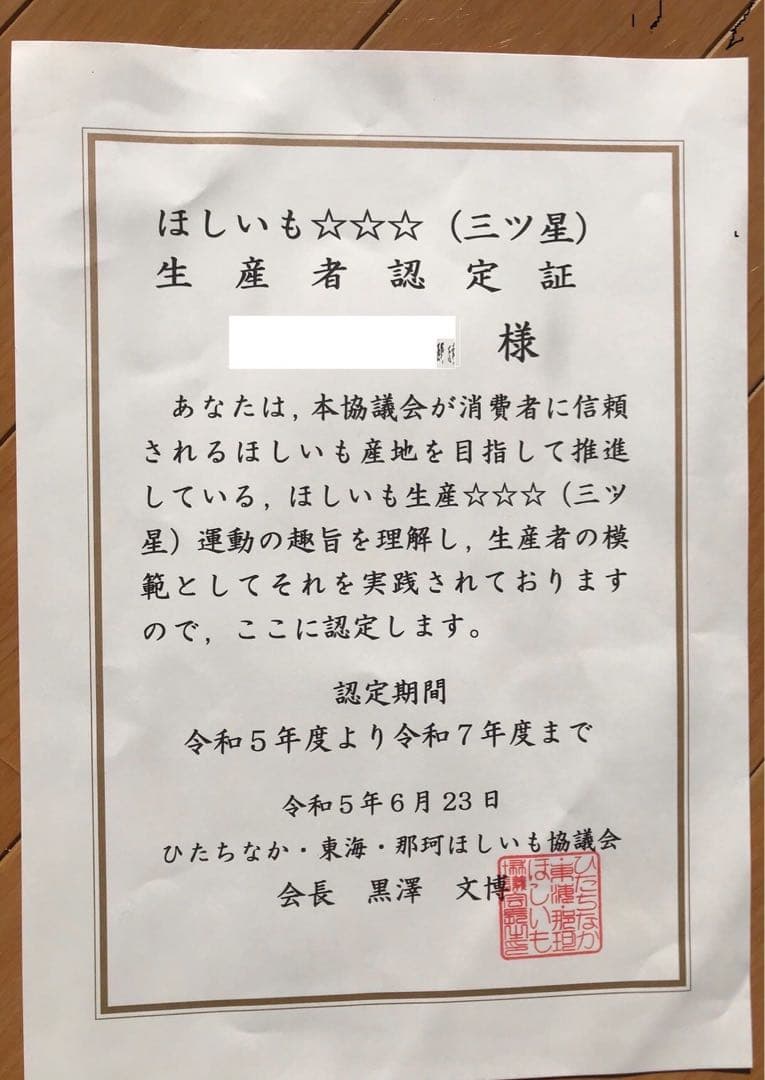 ほしいも☆☆☆(三ツ星)
生産者認定証
様
あなたは,本協議会が消費者に信頼
されるほしいも産地を目指して推進
している,ほしいも生産☆☆☆(三ツ
星)運動の趣旨を理解し,生産者の模
範としてそれを実践されております
ので,ここに認定します。
認定期間
令和5年度より令和7年度まで
令和5年6月23日
ひたちなか・東海・那珂ほしいも協議会
会長 黒澤 文博
ひたちなか
・東海・那珂
ほしいも